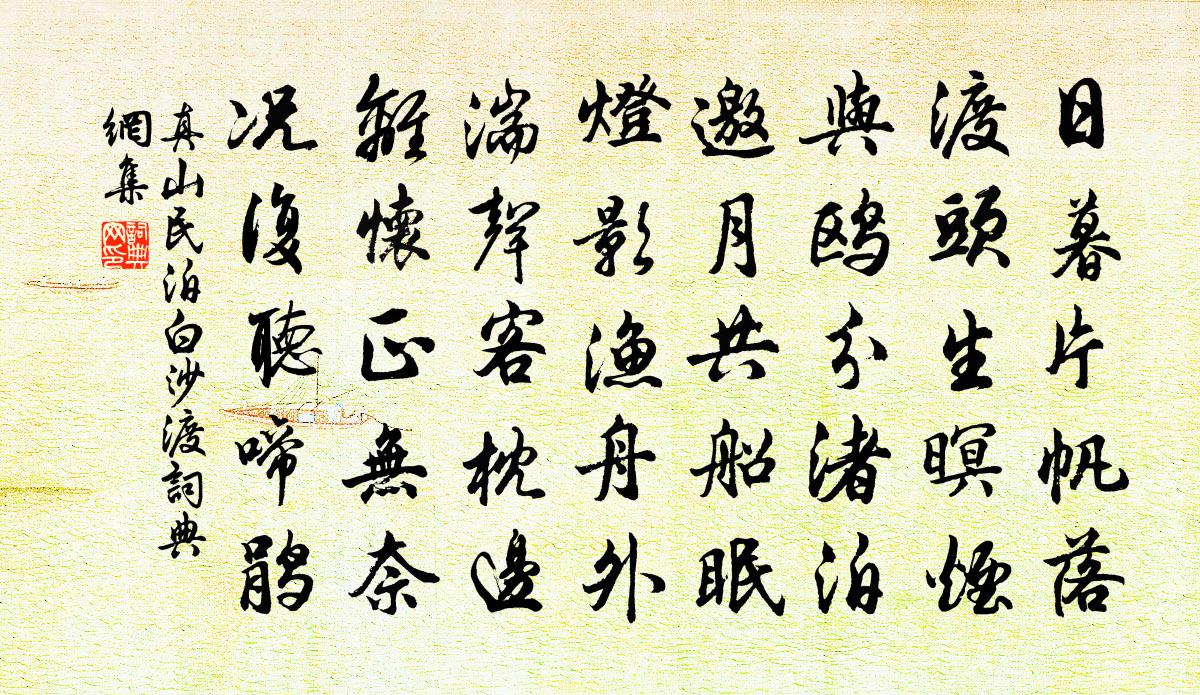 日暮片帆落
渡頭生暝煙
與鷗分渚泊
邀月共船眠
燈影漁舟外
湍聲客枕邊
離懷正無奈
況復聽啼鵑
真山民泊白沙渡詞典
網集
詞典
网印